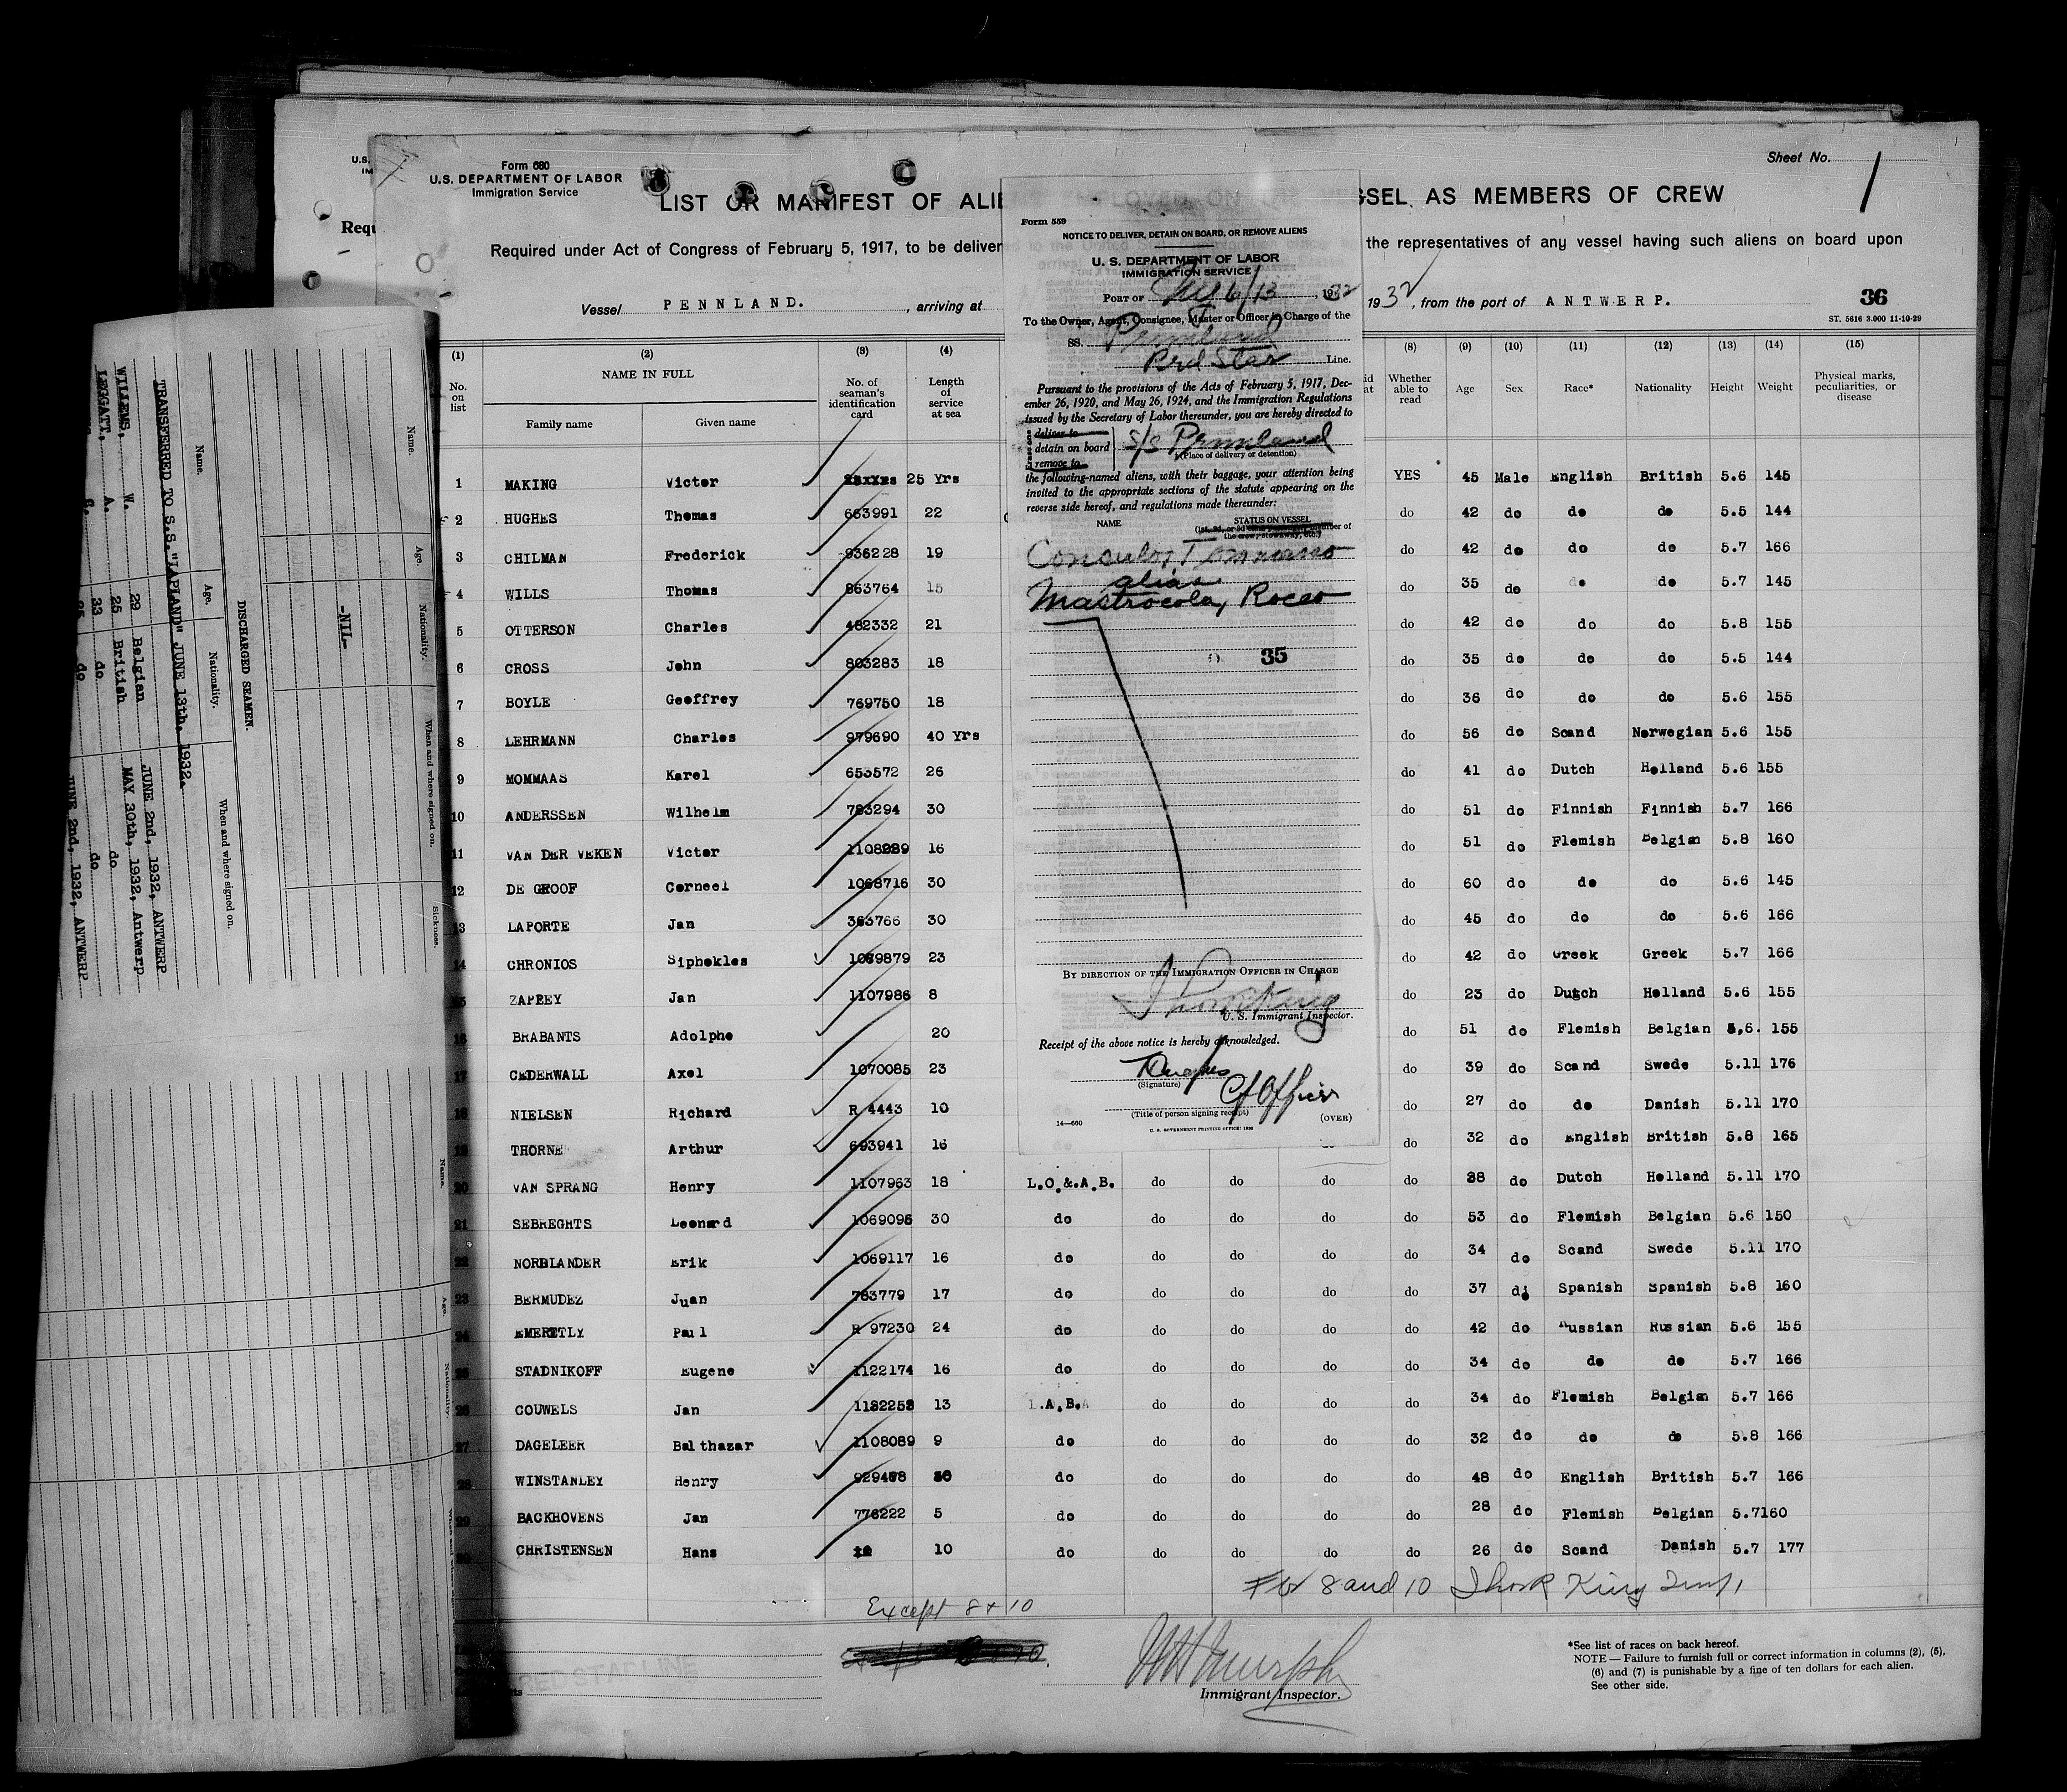 Form 680
U.S. DEPARTMENT OF LABOR
Immigration Service
Sheet No. 1
LIST OR MANIFEST OF ALIE
SSEL AS MEMBERS OF CREW
Required under Act of Congress of February 5, 1917, to be deliver
the representatives of any vessel having such aliens on board upon
Vessel PENNLAND. , arriving at
1932, from the port of ANTWERP.
36
ST. 5616 3.000 11-10-29
(1) (2) (3) (4) (8) (9) (10) (11) (12) (13) (14) (15)
No. on list
NAME IN FULL
Family name Given name
No. of seaman's identification card
Length of service at sea
Whether able to read
Age Sex Race* Nationality Height Weight
Physical marks, peculiarities, or disease
1 MAKING Victor 25 Yrs YES 45 Male English British 5.6 145
2 HUGHES Thomas 663991 22 do 42 do do do 5.5 144
3 CHILMAN Frederick 936228 19 do 42 do do do 5.7 166
4 WILLS Thomas 863764 15 do 35 do do do 5.7 145
5 OTTERSON Charles 482332 21 do 42 do do do 5.8 155
6 CROSS John 803283 18 do 35 do do do 5.5 144
7 BOYLE Geoffrey 769750 18 do 36 do do do 5.6 155
8 LEHRMANN Charles 979690 40 Yrs do 56 do Scand Norwegian 5.6 155
9 MOMMAAS Karel 653572 26 do 41 do Dutch Holland 5.6 155
10 ANDERSSEN Wilhelm 783294 30 do 51 do Finnish Finnish 5.7 166
11 VAN DER VEKEN Victor 16 do 51 do Flemish Belgian 5.8 160
12 DE GROOF Corneel 1068716 30 do 60 do do do 5.6 145
13 LAPORTE Jan 363766 30 do 45 do do do 5.6 166
14 CHRONIOS Siphokles 1069879 23 do 42 do Greek Greek 5.7 166
15 ZAPPEY Jan 1107986 8 do 23 do Dutch Holland 5.6 155
16 BRABANTS Adolphe 20 do 51 do Flemish Belgian 5.6. 155
17 CEDERWALL Axel 1070085 23 do 39 do Scand Swede 5.11 176
18 NIELSEN Richard R 4443 10 do 27 do do Danish 5.11 170
19 THORNE Arthur 693941 16 do 32 do English British 5.8 165
20 VAN SPRANG Henry 1107963 18 L.O.&.A.B. do do do do 38 do Dutch Holland 5.11 170
21 SEBREGHTS Leonard 1069095 30 do do do do do 53 do Flemish Belgian 5.6 150
22 NORDLANDER Erik 1069117 16 do do do do do 34 do Scand Swede 5.11 170
23 BERMUDEZ Juan 783779 17 do do do do do 37 do Spanish Spanish 5.8 160
24 Paul R 97230 24 do do do do do 42 do Russian Russian 5.6 155
25 STADNIKOFF Eugene 1122174 16 do do do do do 34 do do do 5.7 166
26 GOUWELS Jan 13 L.A.B. do do do do 34 do Flemish Belgian 5.7 166
27 DAGELEER Balthazar 1108089 9 do do do do do 32 do do do 5.8 166
28 WINSTANLEY Henry do do do do do 48 do English British 5.7 166
29 BACKHOVENS Jan 776222 5 do do do do do 28 do Flemish Belgian 5.7 160
30 CHRISTENSEN Hans 10 do do do do do 26 do Scand Danish 5.7 177
For 8 and 10 Thos R King Insp.
Except 8 + 10
Immigrant Inspector.
*See list of races on back hereof.
NOTE — Failure to furnish full or correct information in columns (2), (5),
(6) and (7) is punishable by a fine of ten dollars for each alien.
See other side.
RED STAR LINE
Form 559
NOTICE TO DELIVER, DETAIN ON BOARD, OR REMOVE ALIENS
U. S. DEPARTMENT OF LABOR
IMMIGRATION SERVICE
PORT OF NY 6/13, 1932
To the Owner, Agent, Consignee, Master or Officer in Charge of the
SS. Pennland
Red Star Line.
Pursuant to the provisions of the Acts of February 5, 1917, Dec-
ember 26, 1920, and May 26, 1924, and the Immigration Regulations
issued by the Secretary of Labor thereunder, you are hereby directed to
Erase one
deliver to
detain on board
remove to
S/S Pennland
(Place of delivery or detention)
the following-named aliens, with their baggage, your attention being
invited to the appropriate sections of the statute appearing on the
reverse side hereof, and regulations made thereunder:
NAME STATUS ON VESSEL
alias
Mastrocola, Rocco
35
BY DIRECTION OF THE IMMIGRATION OFFICER IN CHARGE
U. S. Immigrant Inspector.
Receipt of the above notice is hereby acknowledged.
(Signature)
Cf Officer
(Title of person signing receipt)
(OVER)
14—660
U. S. GOVERNMENT PRINTING OFFICE
Name. Age. Nationality. When and where signed on. Sickness.
-NIL-
DISCHARGED SEAMEN.
Name. Age. Nationality. When and where signed on.
TRANSFERRED TO S.S. "LAPLAND" JUNE 13th, 1932.
WILLEMS, W. 29 Belgian JUNE 2nd, 1932, ANTWERP
LEGATT, A. 25 British MAY 30th, 1932, Antwerp
33 do do
do do JUNE 2nd, 1932, ANTWERP